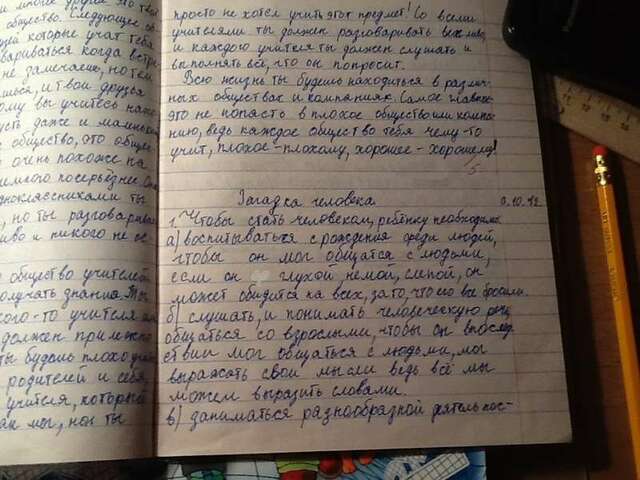 и много другой это твоё
общество. Следующее об-
щей которые учат тебя
вариваться когда встре-
не замечаешь, но тем
шься, и твои друзья
ому вы учитесь
усть даже и маленькое
общество, это общес-
очень похоже на
посерьёзнее.
дноклассниками ты
, но ты разговарива
иво и никого не ос-
общество учителей
олучать знания. Ты
кого-то учителя
должен прилежно
ты будешь плохо
родителей и себя,
учителя, который
мог, но ты
просто не хотел учить этот предмет! Со всеми
учителями ты должен разговаривать вежливо,
и каждого учителя ты должен слушать и
выполнять всё, что он попросит.
Всю жизнь ты будешь находиться в различ-
ных обществах и компаниях. Самое главное
это не попасть в плохое общество или компа-
нию, ведь каждое общество тебя чему-то
учит, плохое - плохому, хорошее - хорошему!
5
Загадка человека 9.10.12.
1. Чтобы стать человеком, ребёнку необходимы
а) воспитываться с рождения среди людей,
чтобы он мог общатся с людьми,
если он глухой немой, слепой, он
может обидится на всех, за то, что его все бросили.
б) слушать, и понимать человеческую речь
общаться со взрослыми, чтобы он впослед
ствии мог общаться с людьми, мог
выражать свои мысли ведь всё мы
можем выразить словами.
в) заниматься разнообразной деятельнос-